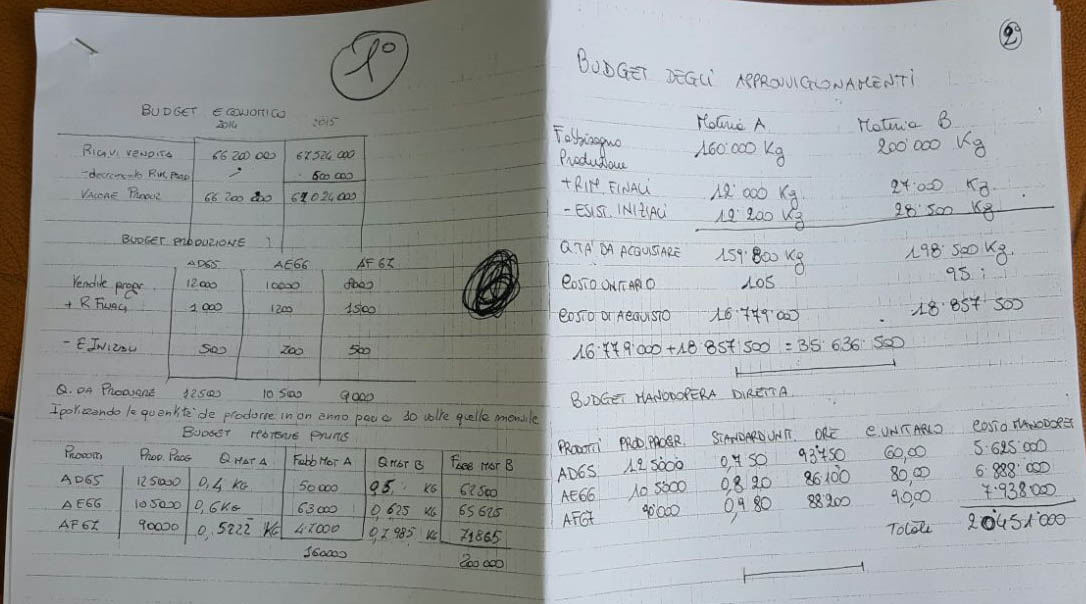 1°
BUDGET ECONOMICO
2014 2015
RICAVI VENDITA 66 200 000 67 524 000
-decremento RIM. PROD / - 500 000
VALORE PRODUZ 66 200 000 67 024 000
BUDGET PRODUZIONE
AD65 AE66 AF67
Vendite progr. 12 000 10 000 8000
+ R FINALI 1 000 1200 1500
- E INIZIALI 500 700 500
Q. DA PRODURRE 12500 10 500 9000
Ipotizzando le quantità da produrre in un anno pari a 10 volte quella mensile
BUDGET MATERIE PRIME
PRODOTTI PROD. PROG Q MAT A FABB MAT A Q MAT B FABB MAT B
AD65 125000 0,4 KG 50000 0,5 KG 62500
AE66 105000 0,6 KG 63000 0,625 KG 65625
AF67 90000 0,5222 KG 47000 0,7985 KG 71865
160000 200 000
2°
BUDGET DEGLI APPROVVIGIONAMENTI
Materia A Materia B
Fabbisogno
Produzione 160'000 Kg 200'000 Kg
+ RIM. FINALI 12'000 Kg 27'000 Kg
- ESIST. INIZIALI 12'200 Kg 28'500 Kg
Q.TA' DA ACQUISTARE 159'800 Kg 198'500 Kg.
COSTO UNITARIO 105 95
COSTO DI ACQUISTO 16'779'000 18'857'500
16'779'000 + 18'857'500 = 35'636'500
BUDGET MANODOPERA DIRETTA
PRODOTTI PROD. PROGR. STANDARD UNIT. ORE C. UNITARIO COSTO MANODOPERA
AD65 125000 0,750 93'750 60,00 5'625'000
AE66 105000 0,820 86'100 80,00 6'888'000
AF67 90'000 0,980 88200 90,00 7'938'000
Totale 20'451'000